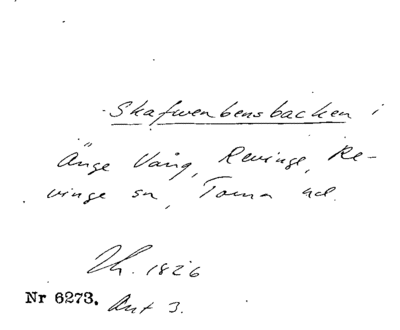 Skafwenbensbacken i
Änge Vång, Revinge, Re-
vinge sn, Torna hd.
Lh. 1826
Nr 6273. Akt 3.